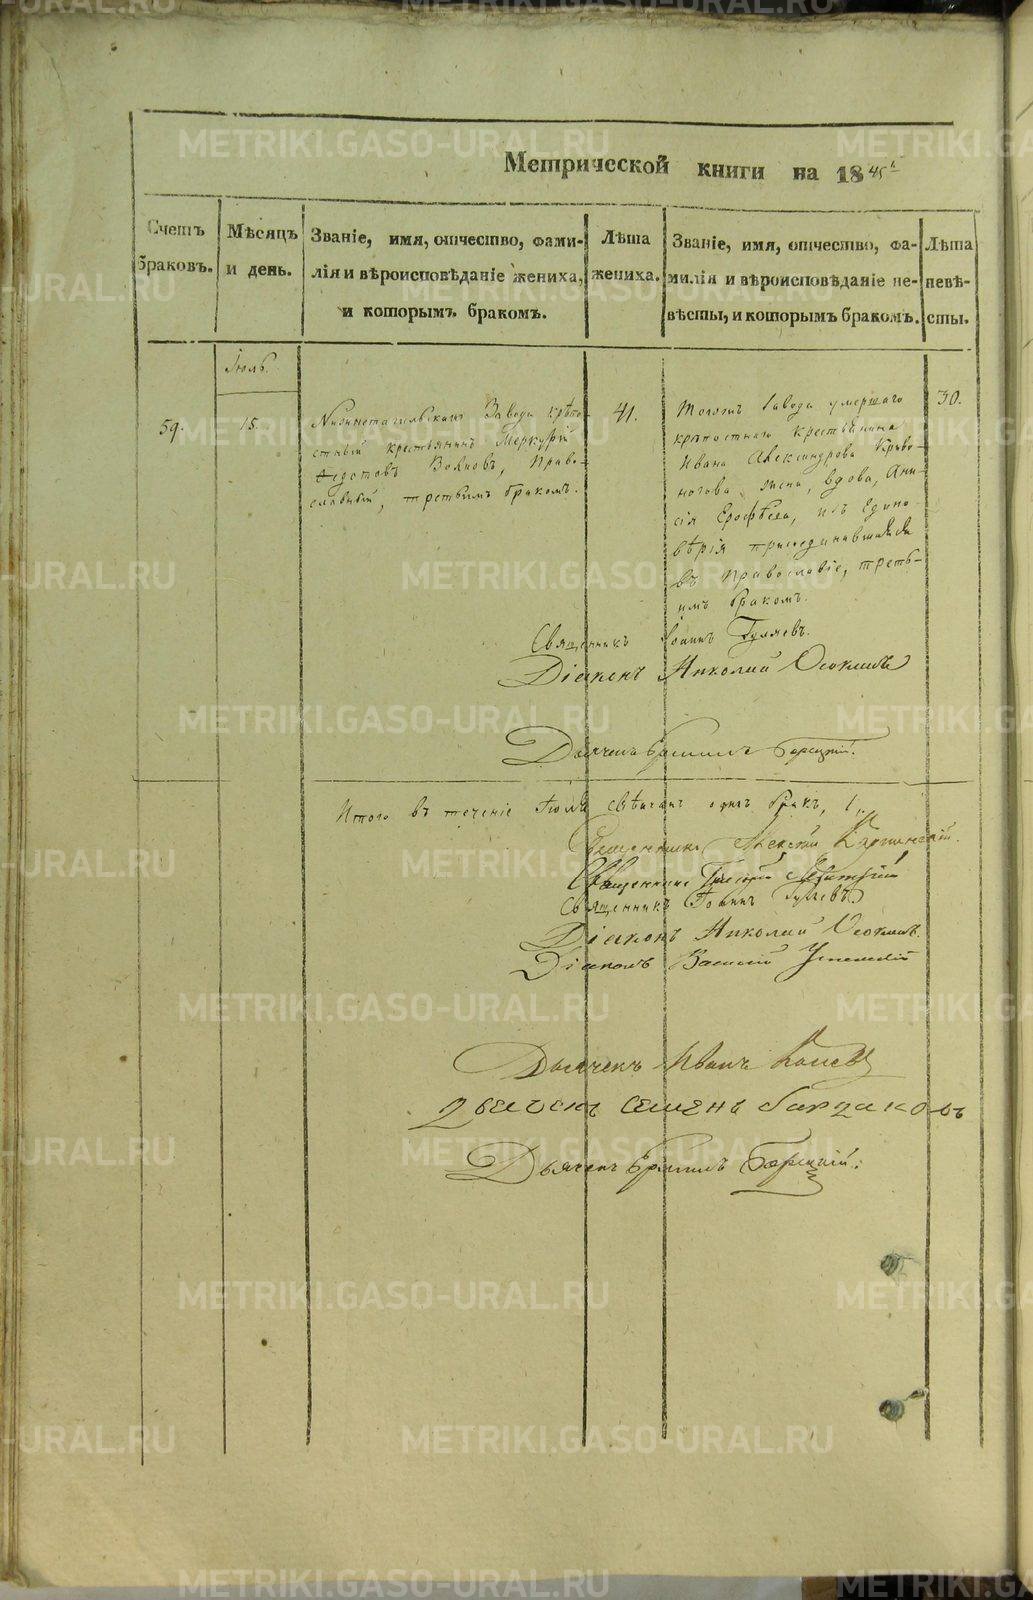 Метрической книги на 1845
Счетъ браковъ.
Мѣсяцъ и день.
Званіе, имя, отчество, фами-
лія и вѣроисповѣданіе жениха,
и которымъ бракомъ.
Лѣта
жениха.
Званіе, имя, отчество, фа-
милія и вѣроисповѣданіе не-
вѣсты, и которымъ бракомъ.
Лѣта
невѣ-
сты.
Іюль.
59.
15.
Нижнетагильскаго Завода крѣпо-
стный крестьянинъ Меркурій
Ѳедотовъ Волковъ, Право-
славный, третьимъ бракомъ.
41.
Тогожъ Завода умершаго
крѣпостнаго крестьянина
Ивана Александрова Криво-
ногова жена, вдова, Ани-
сія Ерофѣева, изъ Едино-
вѣрія присоединившаяся
въ Православіе, треть-
имъ бракомъ.
30.
Священникъ Іоаннъ Гуляевъ.
Діаконъ Николай Осокинъ
Дьячекъ
Итого въ теченіе Іюля свѣнчанъ одинъ бракъ, 1.
Священникъ Алексій
Священникъ
Священникъ Іоаннъ Гуляевъ
Діаконъ Николай Осокинъ
Діаконъ Василій Успенскій
Дьячекъ Иванъ
Дьячекъ Семенъ
Дьячекъ
METRIKI.GASO-URAL.RU